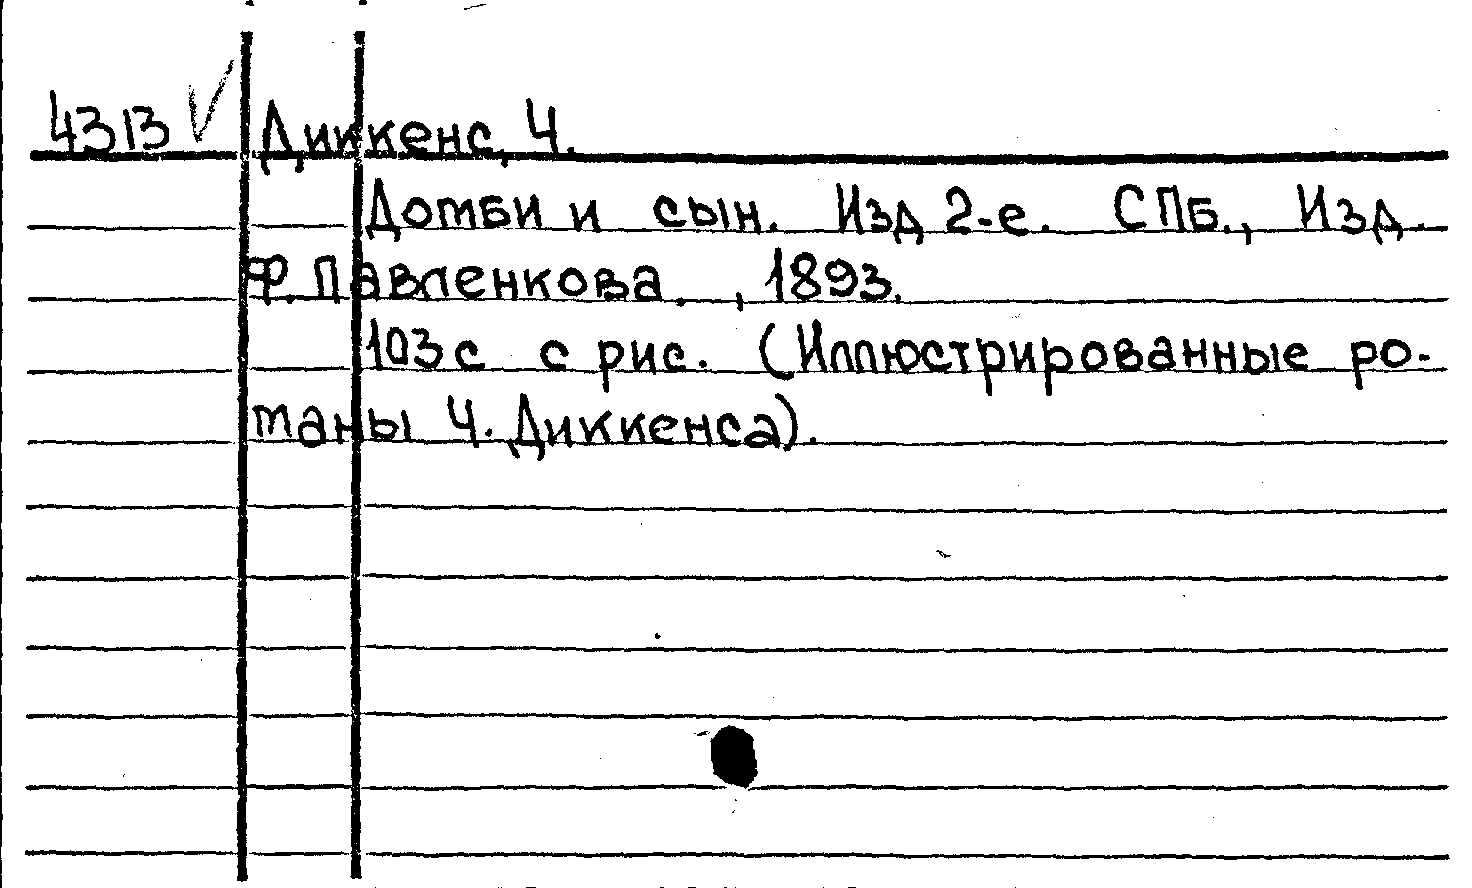 4313 √ Диккенс, Ч.
Домби и сын. Изд 2-е. СПБ., Изд.
Ф. Павленкова., 1893.
103 с с рис. (Иллюстрированные ро-
маны Ч. Диккенса).